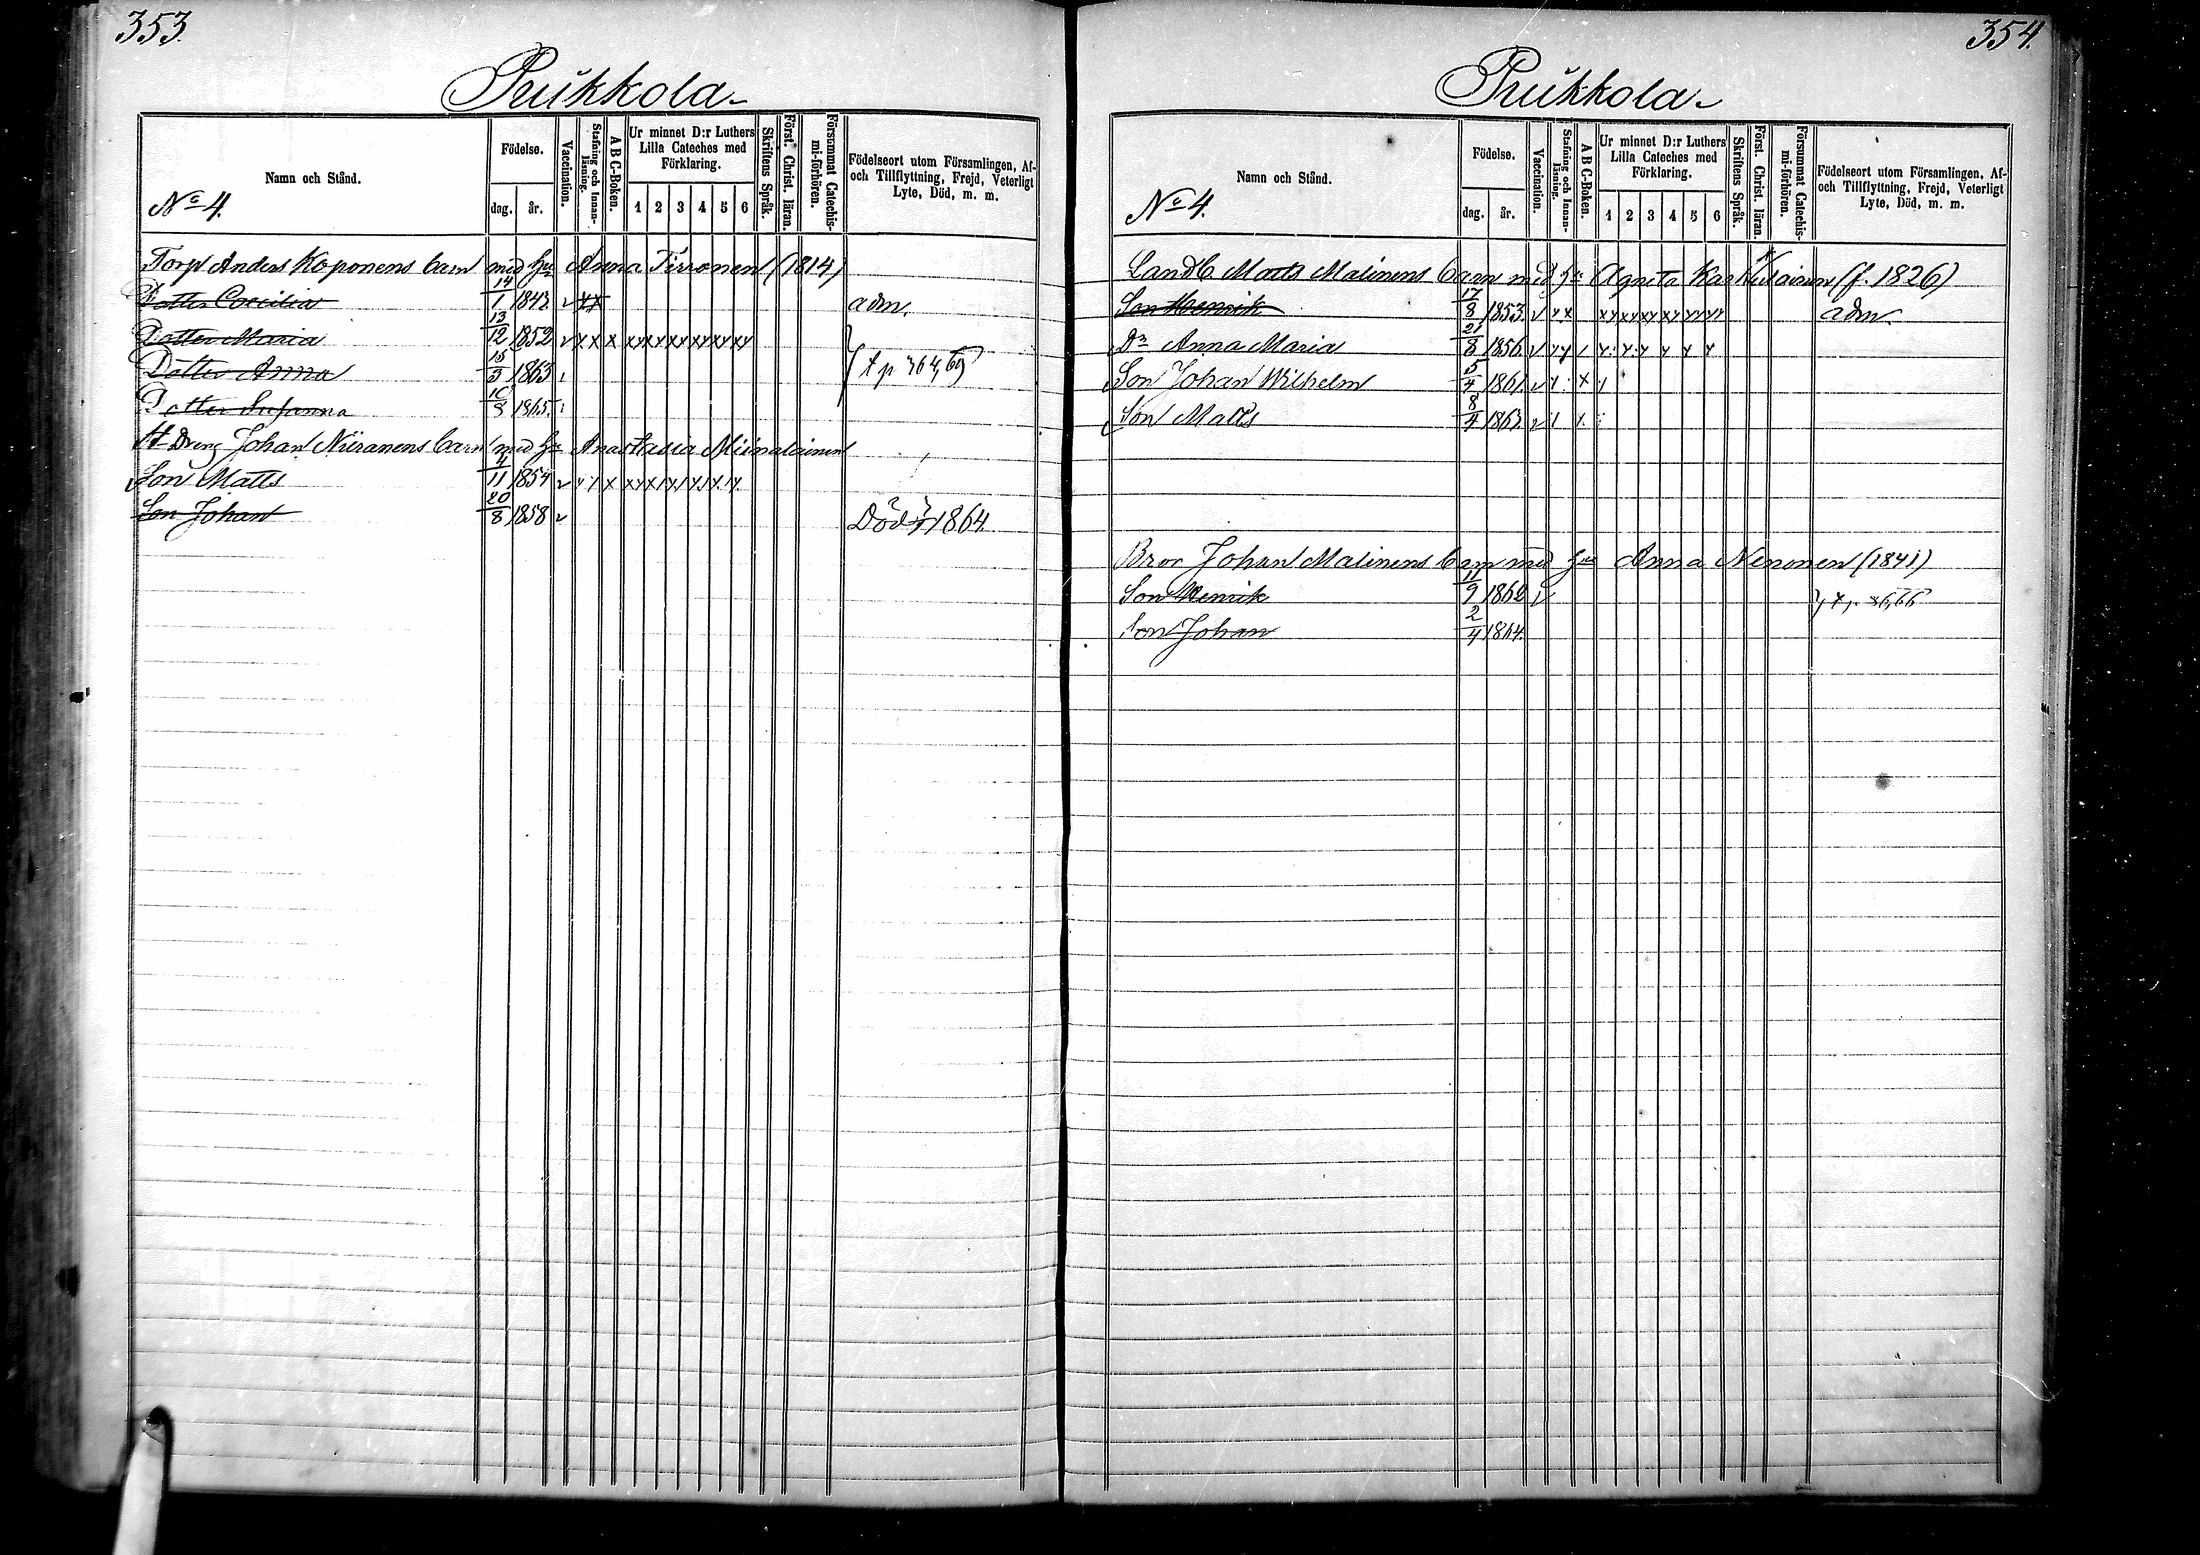 353.
Puikkola
Namn och Stånd.
No 4.
Födelse.
dag. år.
Vaccination.
Stafning och Innan-läsning.
A B C-Boken.
Ur minnet D:r Luthers Lilla Cateches med Förklaring.
1 2 3 4 5 6
Skriftens Språk.
Först. Christ. läran.
Försummat Catechis-mi-förhören.
Födelseort utom Församlingen, Af- och Tillflyttning, Frejd, Veterligt Lyte, Död, m. m.
Torp Anders Koponens barn med hu Anna Tirronen (1814)
Dotter Coecilia 14/1 1847. v x x adm.
Dotter Maria 13/12 1852 v x x x xx xx xx xx xx xy
Dotter Anna 1863
Dotter Susanna 1865.
Dreng Johan Niiranens barn med hu Anastasia Miinalainen
Son Matts 11 1854 v
Son Johan 20/8 1858 v Död 1864.
354.
Puikkola
Namn och Stånd.
No 4.
Födelse.
dag. år.
Vaccination.
Stafning och Innan-läsning.
A B C-Boken.
Ur minnet D:r Luthers Lilla Cateches med Förklaring.
1 2 3 4 5 6
Skriftens Språk.
Först. Christ. läran.
Försummat Catechis-mi-förhören.
Födelseort utom Församlingen, Af- och Tillflyttning, Frejd, Veterligt Lyte, Död, m. m.
Landb Matts Malinens barn med hu Agneta (f. 1826)
Son Henrik 17/8 1853. v x x adm.
Dr Anna Maria 21/8 1856. v
Son Johan Wilhelm 5/4 1861. v
Son Matts 8/4 1863. v
Bror Johan Malinens barn med hu Anna Nenonen (1841)
Son Henrik 11/9 1862 v
Son Johan 2/4 1864.